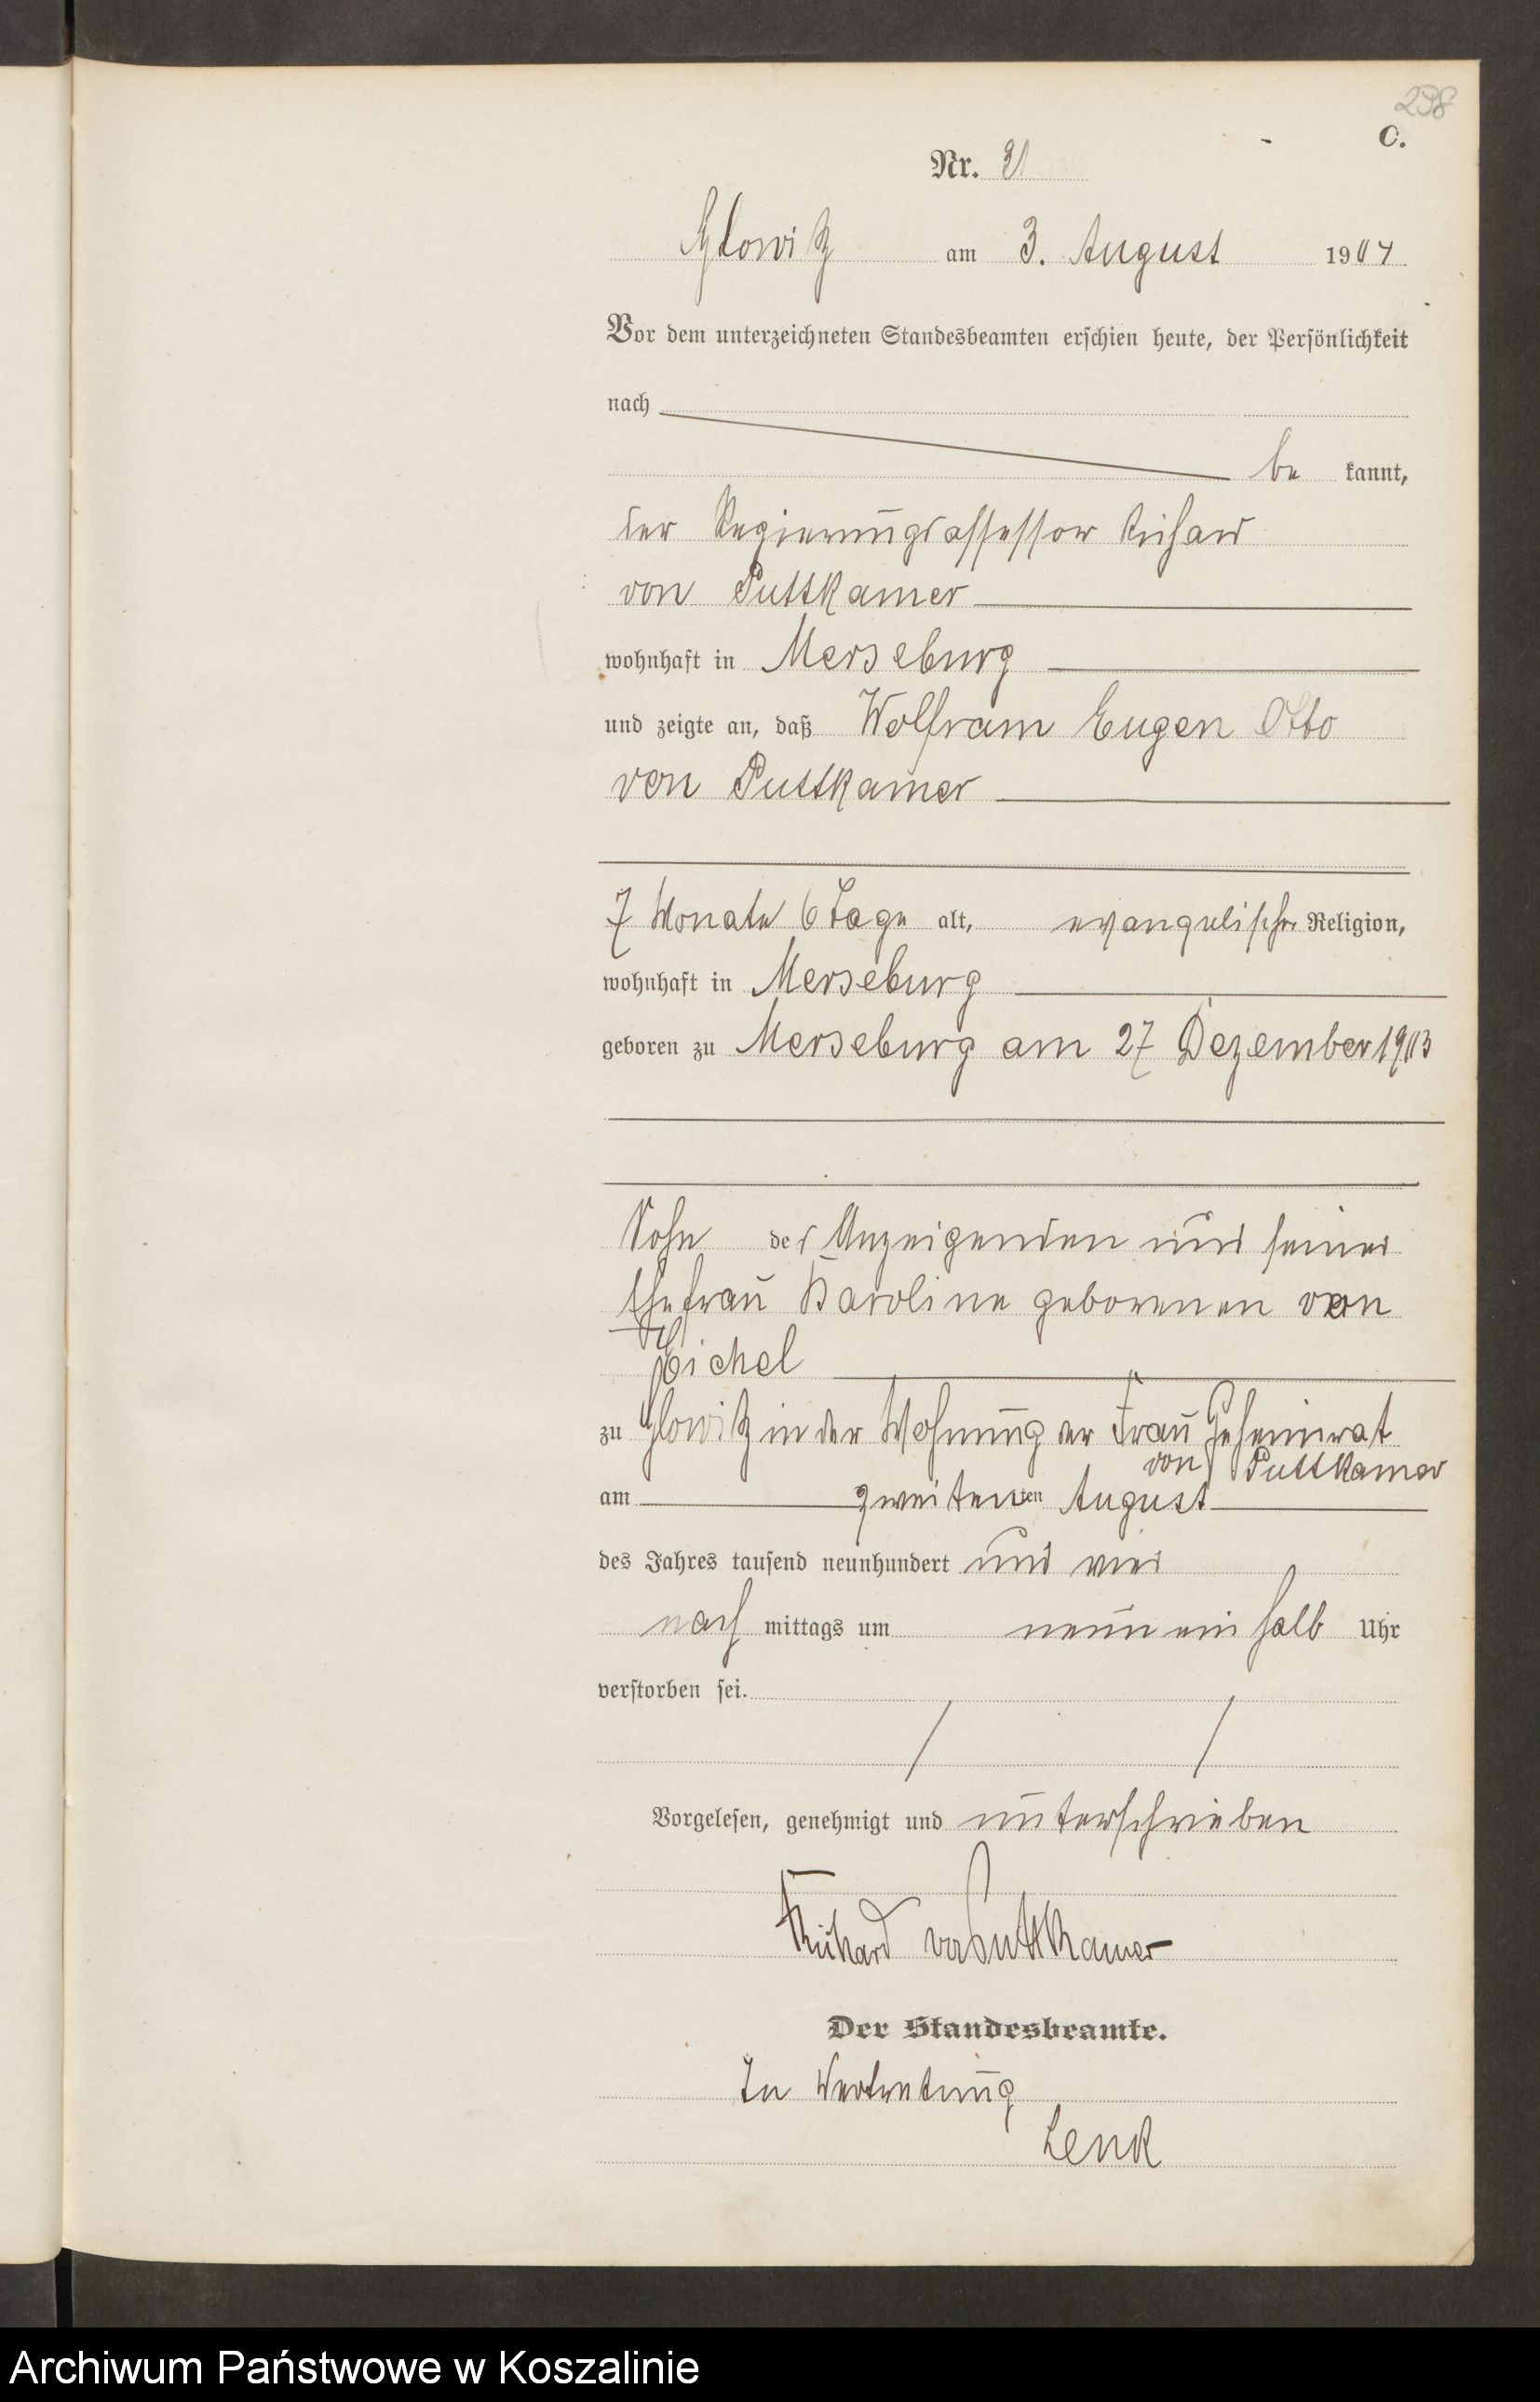 298
C.
Nr. 31
Glowitz am 3. August 1904
Vor dem unterzeichneten Standesbeamten erschien heute, der Persönlichkeit
nach
be kannt,
der Regierungsassessor Richard
von Puttkamer
wohnhaft in Merseburg
und zeigte an, daß Wolfram Eugen Otto
von Puttkamer
7 Monate 6 Tage alt, evangelischer Religion,
wohnhaft in Merseburg
geboren zu Merseburg am 27 Dezember 1903
Sohn des Anzeigenden und seiner
Ehefrau Karoline geborenen von
Eichel
zu Glowitz in der Wohnung der Frau Geheimrat
von Puttkamer
am zweiten ten August
des Jahres tausend neunhundert und vier
nach mittags um neun ein halb Uhr
verstorben sei.
Vorgelesen, genehmigt und unterschrieben
Richard von Puttkamer
Der Standesbeamte.
In Vertretung
Lenk
Archiwum Państwowe w Koszalinie